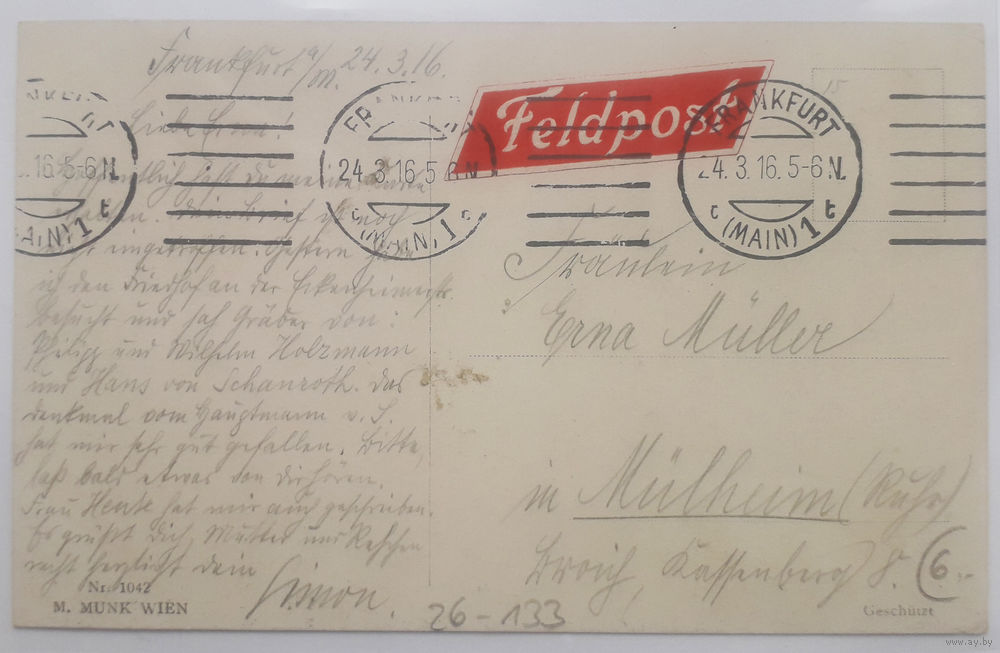 Frankfurt a/M. 24.3.16.
Liebe Erna!
Hoffentlich hast du meine
erhalten. Dein Brief ist noch
nicht eingetroffen. Gestern habe
ich den Friedhof an der Eckenheimerstr.
besucht und sah Gräber von:
Philipp und Wilhelm Holzmann
und Hans von Schanroth. Das
Denkmal vom Hauptmann v. S.
hat mir sehr gut gefallen. Bitte,
laß bald etwas von dir hören.
Frau Hente hat mir auch geschrieben.
Es grüßt Dich, Mutter und
recht herzlichst dein
Simon.
Nr. 1042
M. MUNK WIEN
26-133
Feldpost
FRANKFURT
24.3.16.5-6N.
(MAIN) 1 t
FRANKFURT
24.3.16.5-6N.
c (MAIN) 1 t
FRANKFURT
24.3.16.5-6N.
c (MAIN) 1 t
15
Fräulein
Erna Müller
in Mülheim (Ruhr)
Broich, Kassenberg 8.
6.-
Geschützt
www.ay.by